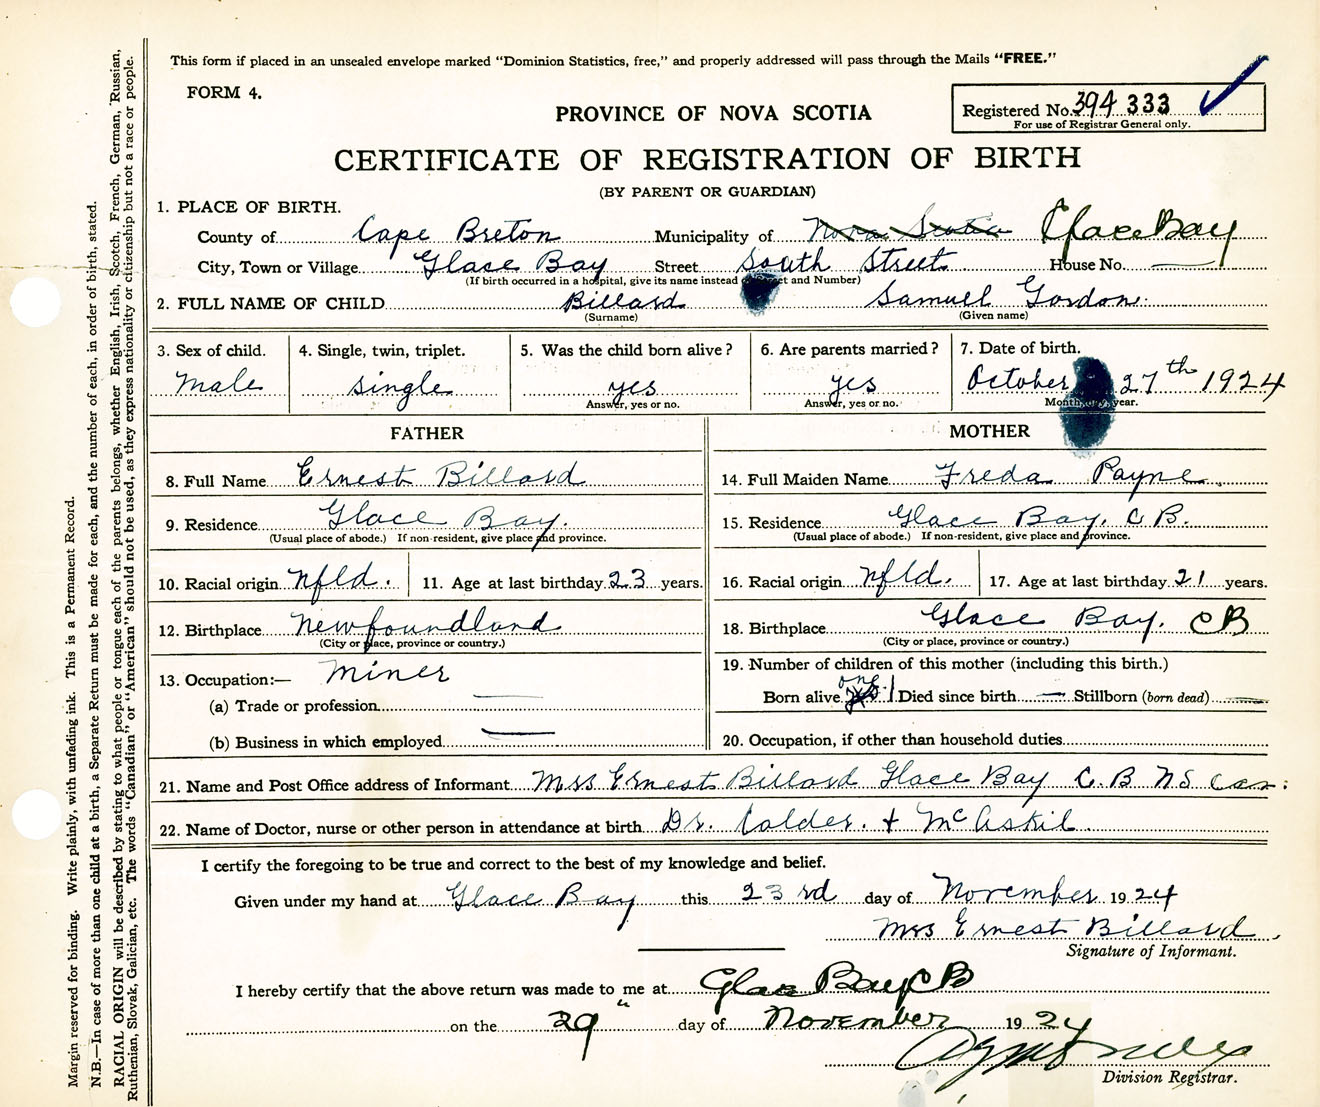 This form if placed in an unsealed envelope marked "Dominion Statistics, free," and properly addressed will pass through the Mails "FREE."
FORM 4.
PROVINCE OF NOVA SCOTIA
Registered No. 394 333
For use of Registrar General only.
CERTIFICATE OF REGISTRATION OF BIRTH
(BY PARENT OR GUARDIAN)
1. PLACE OF BIRTH.
County of Cape Breton Municipality of Nova Scotia Glace Bay
City, Town or Village Glace Bay Street South Street House No. —
(If birth occurred in a hospital, give its name instead et and Number)
2. FULL NAME OF CHILD Billard Samuel Gordon.
(Surname) (Given name)
3. Sex of child. 4. Single, twin, triplet. 5. Was the child born alive? 6. Are parents married? 7. Date of birth.
Male single yes yes October 27th 1924
Answer, yes or no. Answer, yes or no. Month, day, year.
FATHER MOTHER
8. Full Name Ernest Billard 14. Full Maiden Name Freda Payne
9. Residence Glace Bay. 15. Residence Glace Bay. C B.
(Usual place of abode.) If non-resident, give place and province. (Usual place of abode.) If non-resident, give place and province.
10. Racial origin nfld. 11. Age at last birthday 23 years. 16. Racial origin nfld. 17. Age at last birthday 21 years.
12. Birthplace Newfoundland 18. Birthplace Glace Bay. CB
(City or place, province or country.) (City or place, province or country.)
13. Occupation:— Miner 19. Number of children of this mother (including this birth.)
(a) Trade or profession — Born alive one 1 Died since birth — Stillborn (born dead) —
(b) Business in which employed — 20. Occupation, if other than household duties
21. Name and Post Office address of Informant Mrs Ernest Billard Glace Bay C. B N S Can:
22. Name of Doctor, nurse or other person in attendance at birth Dr. Calder. + McAskil.
I certify the foregoing to be true and correct to the best of my knowledge and belief.
Given under my hand at Glace Bay this 23rd day of November 1924
Mrs Ernest Billard.
Signature of Informant.
I hereby certify that the above return was made to me at Glace Bay CB
on the 29" day of November 1924
Division Registrar.
Margin reserved for binding. Write plainly, with unfading ink. This is a Permanent Record.
N.B.—In case of more than one child at a birth, a Separate Return must be made for each, and the number of each, in order of birth, stated.
RACIAL ORIGIN will be described by stating to what people or tongue each of the parents belongs, whether English, Irish, Scotch, French, German, Russian,
Ruthenian, Slovak, Galician, etc. The words "Canadian" or "American" should not be used, as they express nationality or citizenship but not a race or people.